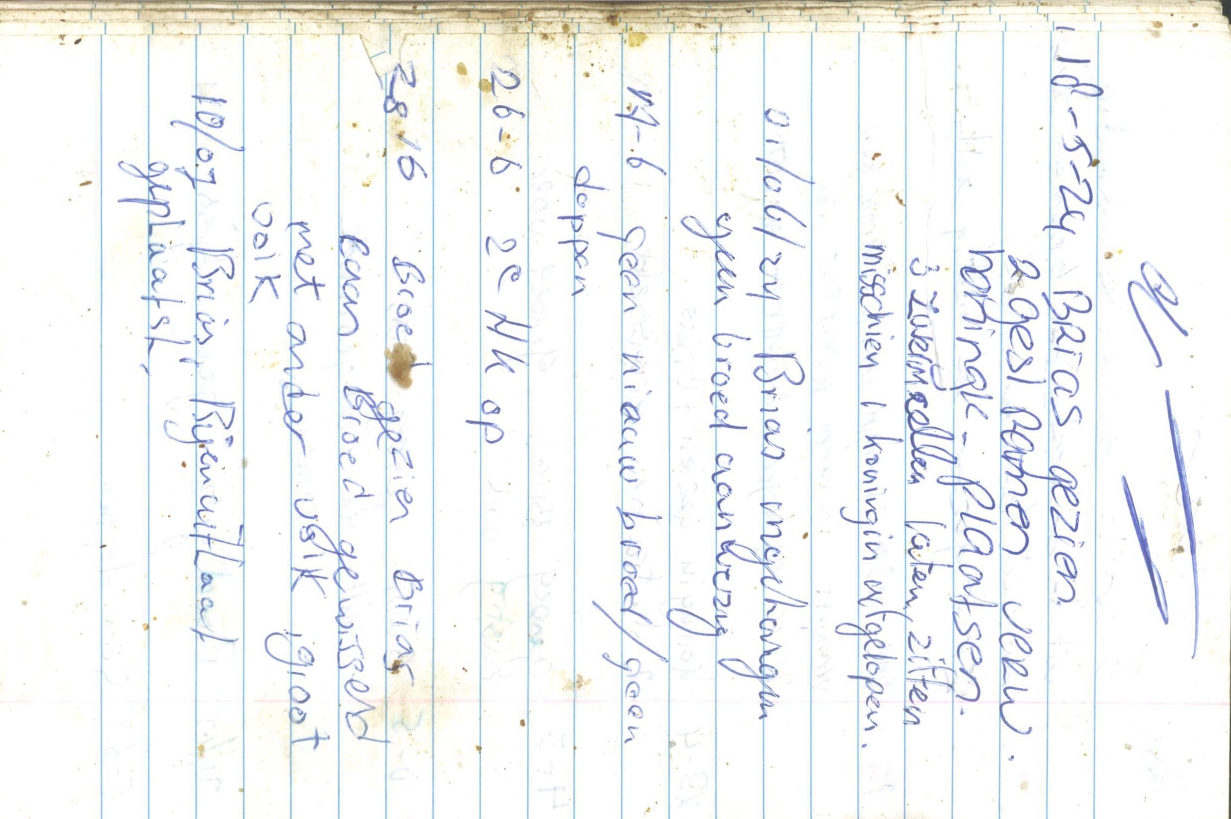 18-5-24 Brias gezien
2 gesl Ramen verw.
honingk-plaatsen.
3 zwermcellen laten zitten
misschien 1 koningin uitgelopen.
01/06/24 Brias ingehangen
geen broed aanwezig
17-6 geen nieuw broed/geen
doppen
26-6 2e HK op
28 16 Broed gezien Brias
Raam Broed gewisseld
met ander volk groot
volk
10/07 Brias, Bijenuitlaat
geplaatst.